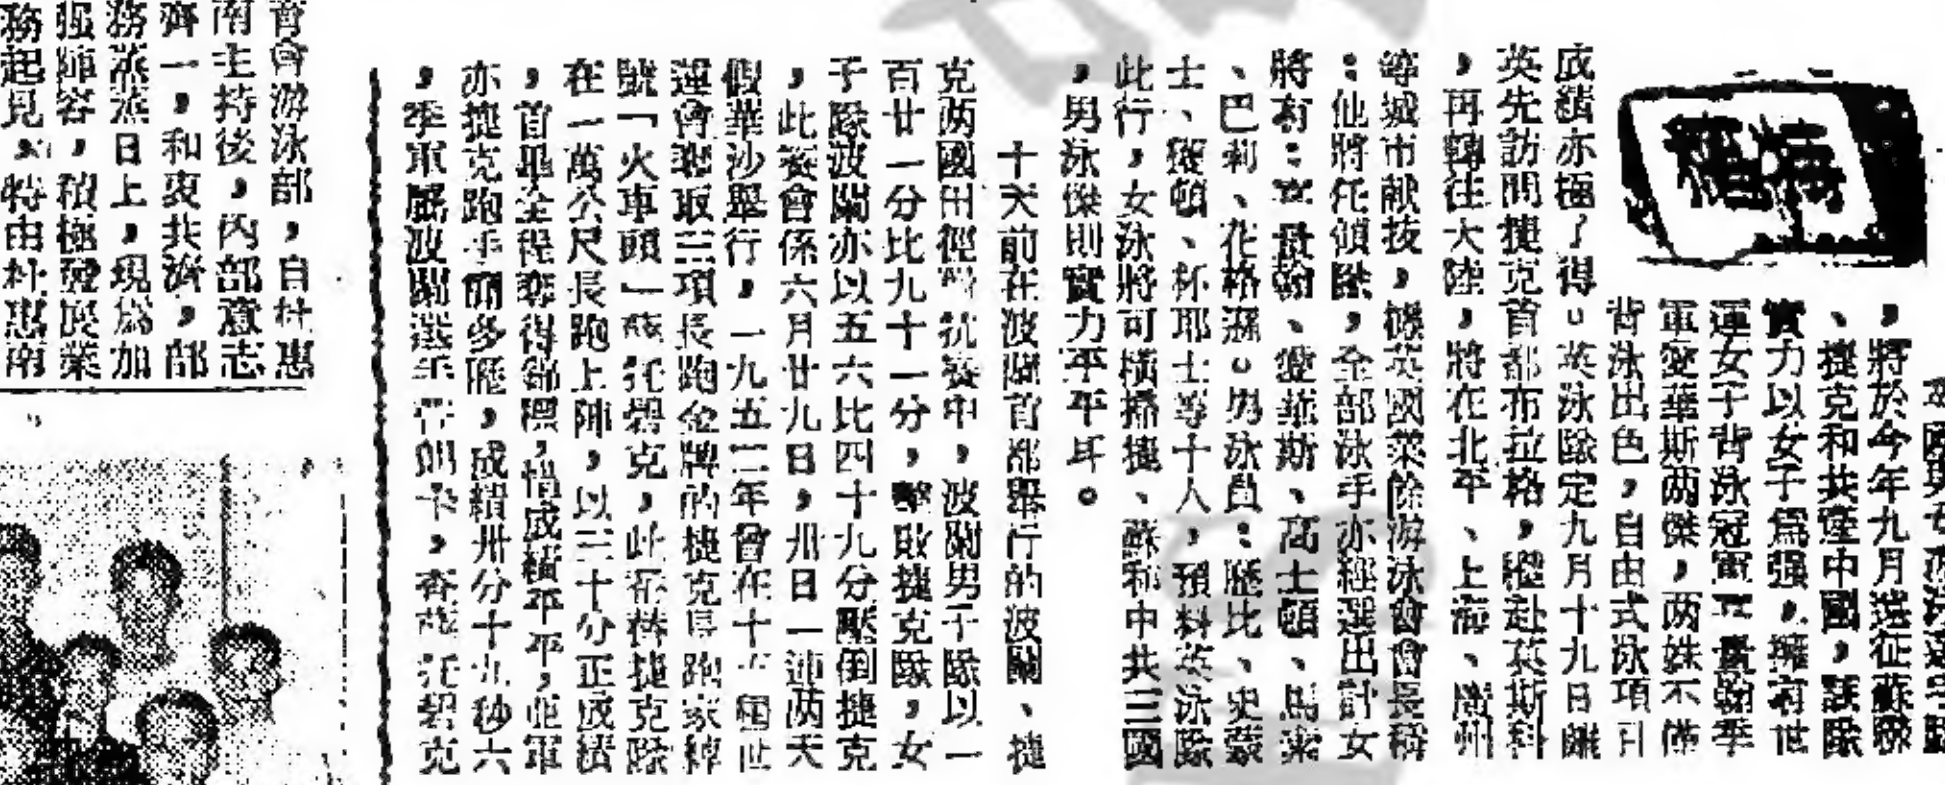 ，將於今年九月遠征蘇聯
、捷克和共產中國，該隊
實力以女子爲强，擁有世
運女子背泳冠軍 季
軍愛華斯两傑，两姝不僅
背泳出色，自由式泳項
成績亦極了得。英泳隊定九月十九日離
英先訪問捷克首都布拉格，繼赴莫斯科
，再轉往大陸，將在北平、上海、廣州
等城市献技，據英國業餘游泳會會長稱
：他將任領隊，全部泳手亦經選出計女
將有： 愛華斯、高士頓、馬
、巴莉、花格遜。男泳員：歷比、史蒙
士、 頓、杯耶士等十人，預料英泳隊
此行，女泳將可橫掃捷、蘇和中共三國
，男泳傑則實力平平耳。
十天前在波蘭首都舉行的波蘭、捷
克两國田徑對抗賽中，波蘭男子隊以一
百廿一分比九十一分，擊敗捷克隊，女
子隊波蘭亦以五六比四十九分壓倒捷克
，此賽會係六月廿九日，卅日一連两天
假華沙舉行，一九五二年曾在十五屆世
運會聯取三項長跑金牌的捷克長跑家綽
號「火車頭」薩托碧克，此在替捷克隊
在一萬公尺長跑上陣，以三十分正成績
，首畢全程奪得錦標，惜成積平平，亞軍
亦捷克跑手 多 ，成績卅分十九秒六
，季軍屬波蘭選手 卡，查薩托碧克
育會游泳部，自杜惠
南主持後，內部意志
齊一，和衷共濟，部
務蒸蒸日上，現爲加
强陣容，積極發展業
務起見，特由杜惠南